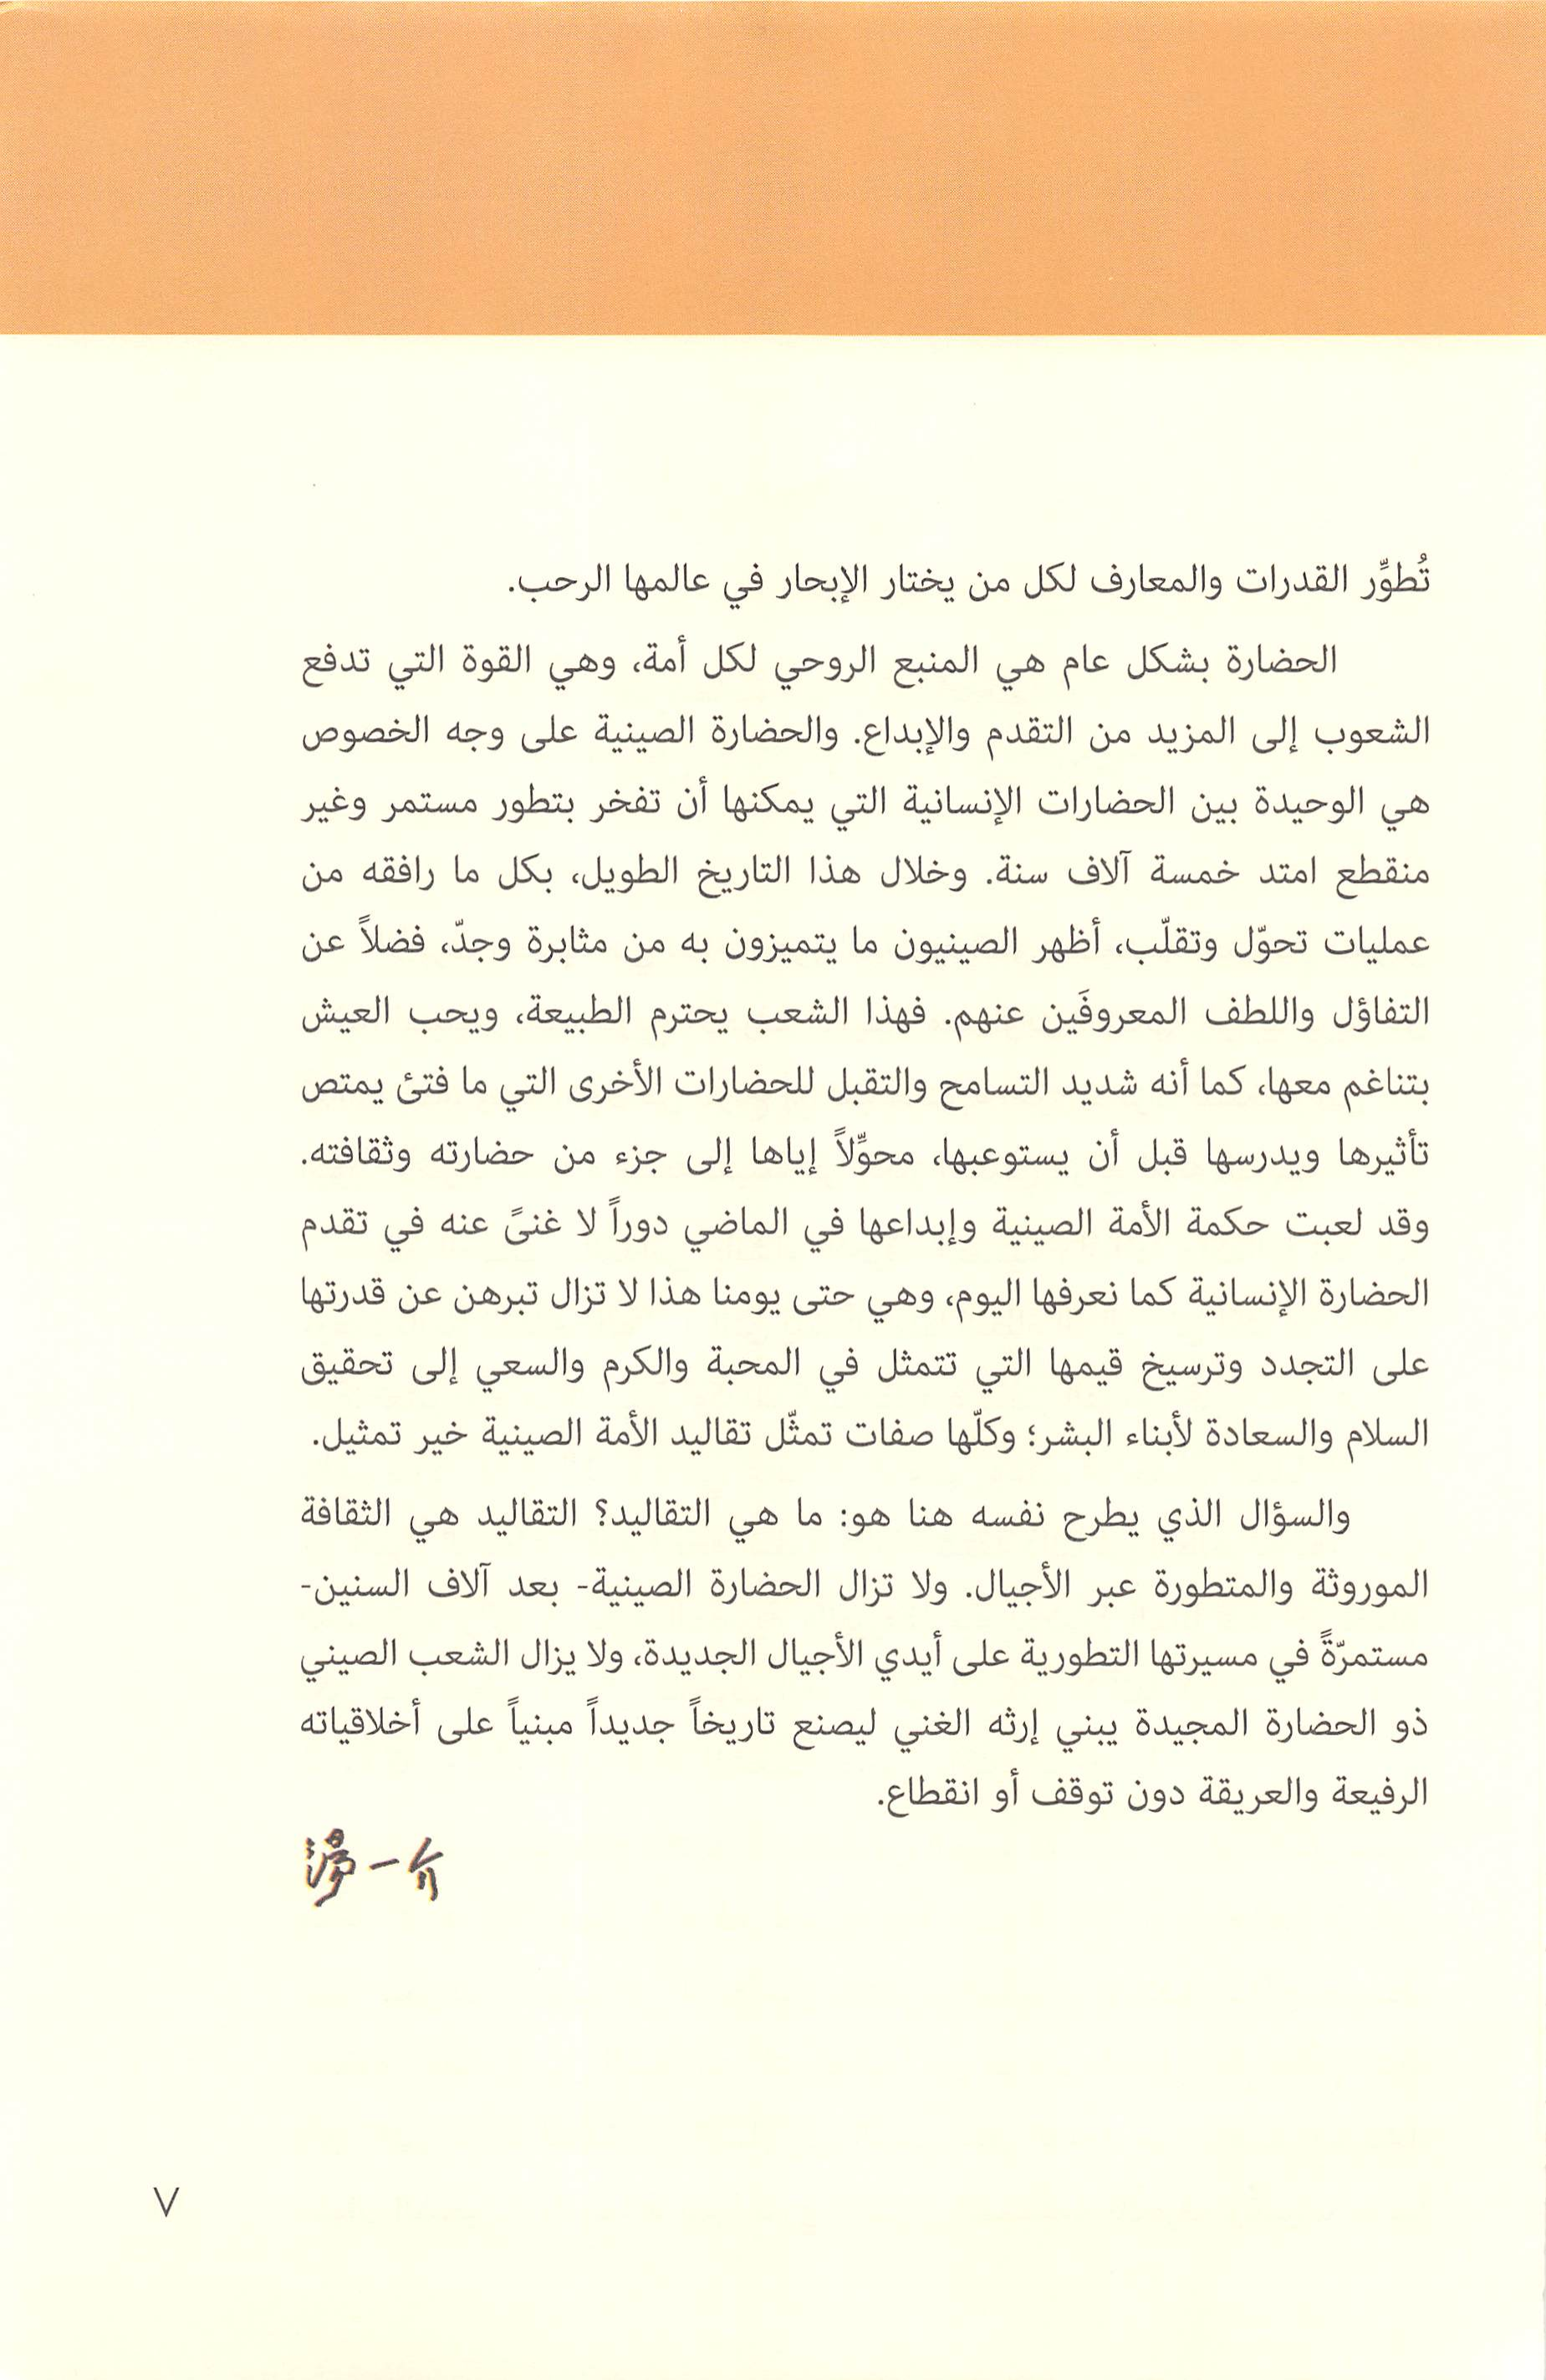 تُطوِّر القدرات والمعارف لكل من يختار الإبحار في عالمها الرحب.
الحضارة بشكل عام هي المنبع الروحي لكل أمة، وهي القوة التي تدفع
الشعوب إلى المزيد من التقدم والإبداع. والحضارة الصينية على وجه الخصوص
هي الوحيدة بين الحضارات الإنسانية التي يمكنها أن تفخر بتطور مستمر وغير
منقطع امتد خمسة آلاف سنة. وخلال هذا التاريخ الطويل، بكل ما رافقه من
عمليات تحوّل وتقلّب، أظهر الصينيون ما يتميزون به من مثابرة وجدّ، فضلاً عن
التفاؤل واللطف المعروفَين عنهم. فهذا الشعب يحترم الطبيعة، ويحب العيش
بتناغم معها، كما أنه شديد التسامح والتقبل للحضارات الأخرى التي ما فتئ يمتص
تأثيرها ويدرسها قبل أن يستوعبها، محوِّلاً إياها إلى جزء من حضارته وثقافته.
وقد لعبت حكمة الأمة الصينية وإبداعها في الماضي دوراً لا غنىً عنه في تقدم
الحضارة الإنسانية كما نعرفها اليوم، وهي حتى يومنا هذا لا تزال تبرهن عن قدرتها
على التجدد وترسيخ قيمها التي تتمثل في المحبة والكرم والسعي إلى تحقيق
السلام والسعادة لأبناء البشر؛ وكلّها صفات تمثّل تقاليد الأمة الصينية خير تمثيل.
والسؤال الذي يطرح نفسه هنا هو: ما هي التقاليد؟ التقاليد هي الثقافة
الموروثة والمتطورة عبر الأجيال. ولا تزال الحضارة الصينية- بعد آلاف السنين-
مستمرّةً في مسيرتها التطورية على أيدي الأجيال الجديدة، ولا يزال الشعب الصيني
ذو الحضارة المجيدة يبني إرثه الغني ليصنع تاريخاً جديداً مبنياً على أخلاقياته
الرفيعة والعريقة دون توقف أو انقطاع.
湯一介
٧